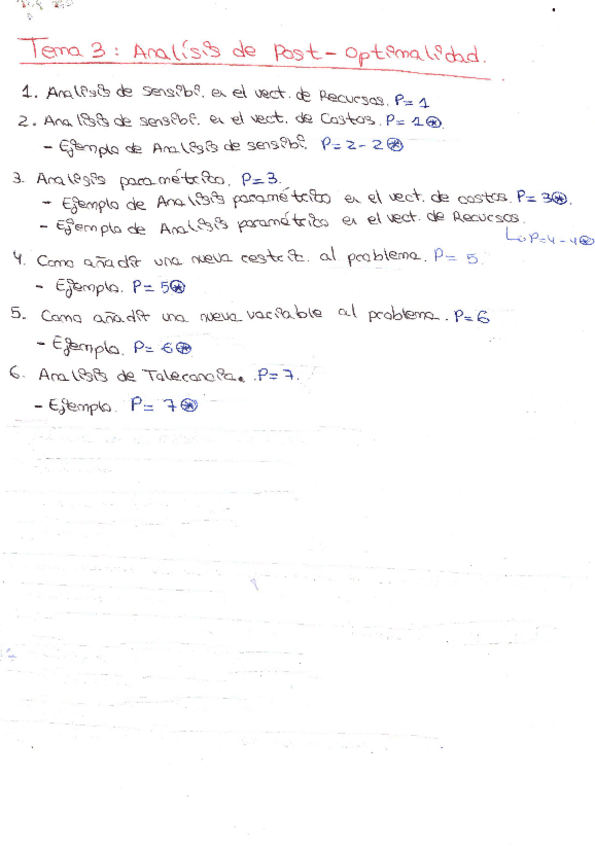 Tema 3: Analísis de Post-Optimalidad.
1. Analisis de sensibi. en el vect. de Recursos. P=1
2. Analisis de sensibi. en el vect. de Costos. P=1⊛.
- Ejemplo de Analisis de sensibi. P=2-2⊛
3. Analisis paramétrico. P=3.
- Ejemplo de Analisis paramétrico en el vect. de costos. P=3⊛.
- Ejemplo de Analisis paramétrico en el vect. de Recursos.
↳P=4-4⊛
4. Como añadir una nueva restric. al problema. P=5.
- Ejemplo. P=5⊛
5. Como añadir una nueva variable al problema. P=6
- Ejemplo. P=6⊛
6. Analisis de Tolerancia. P=7.
- Ejemplo. P=7⊛